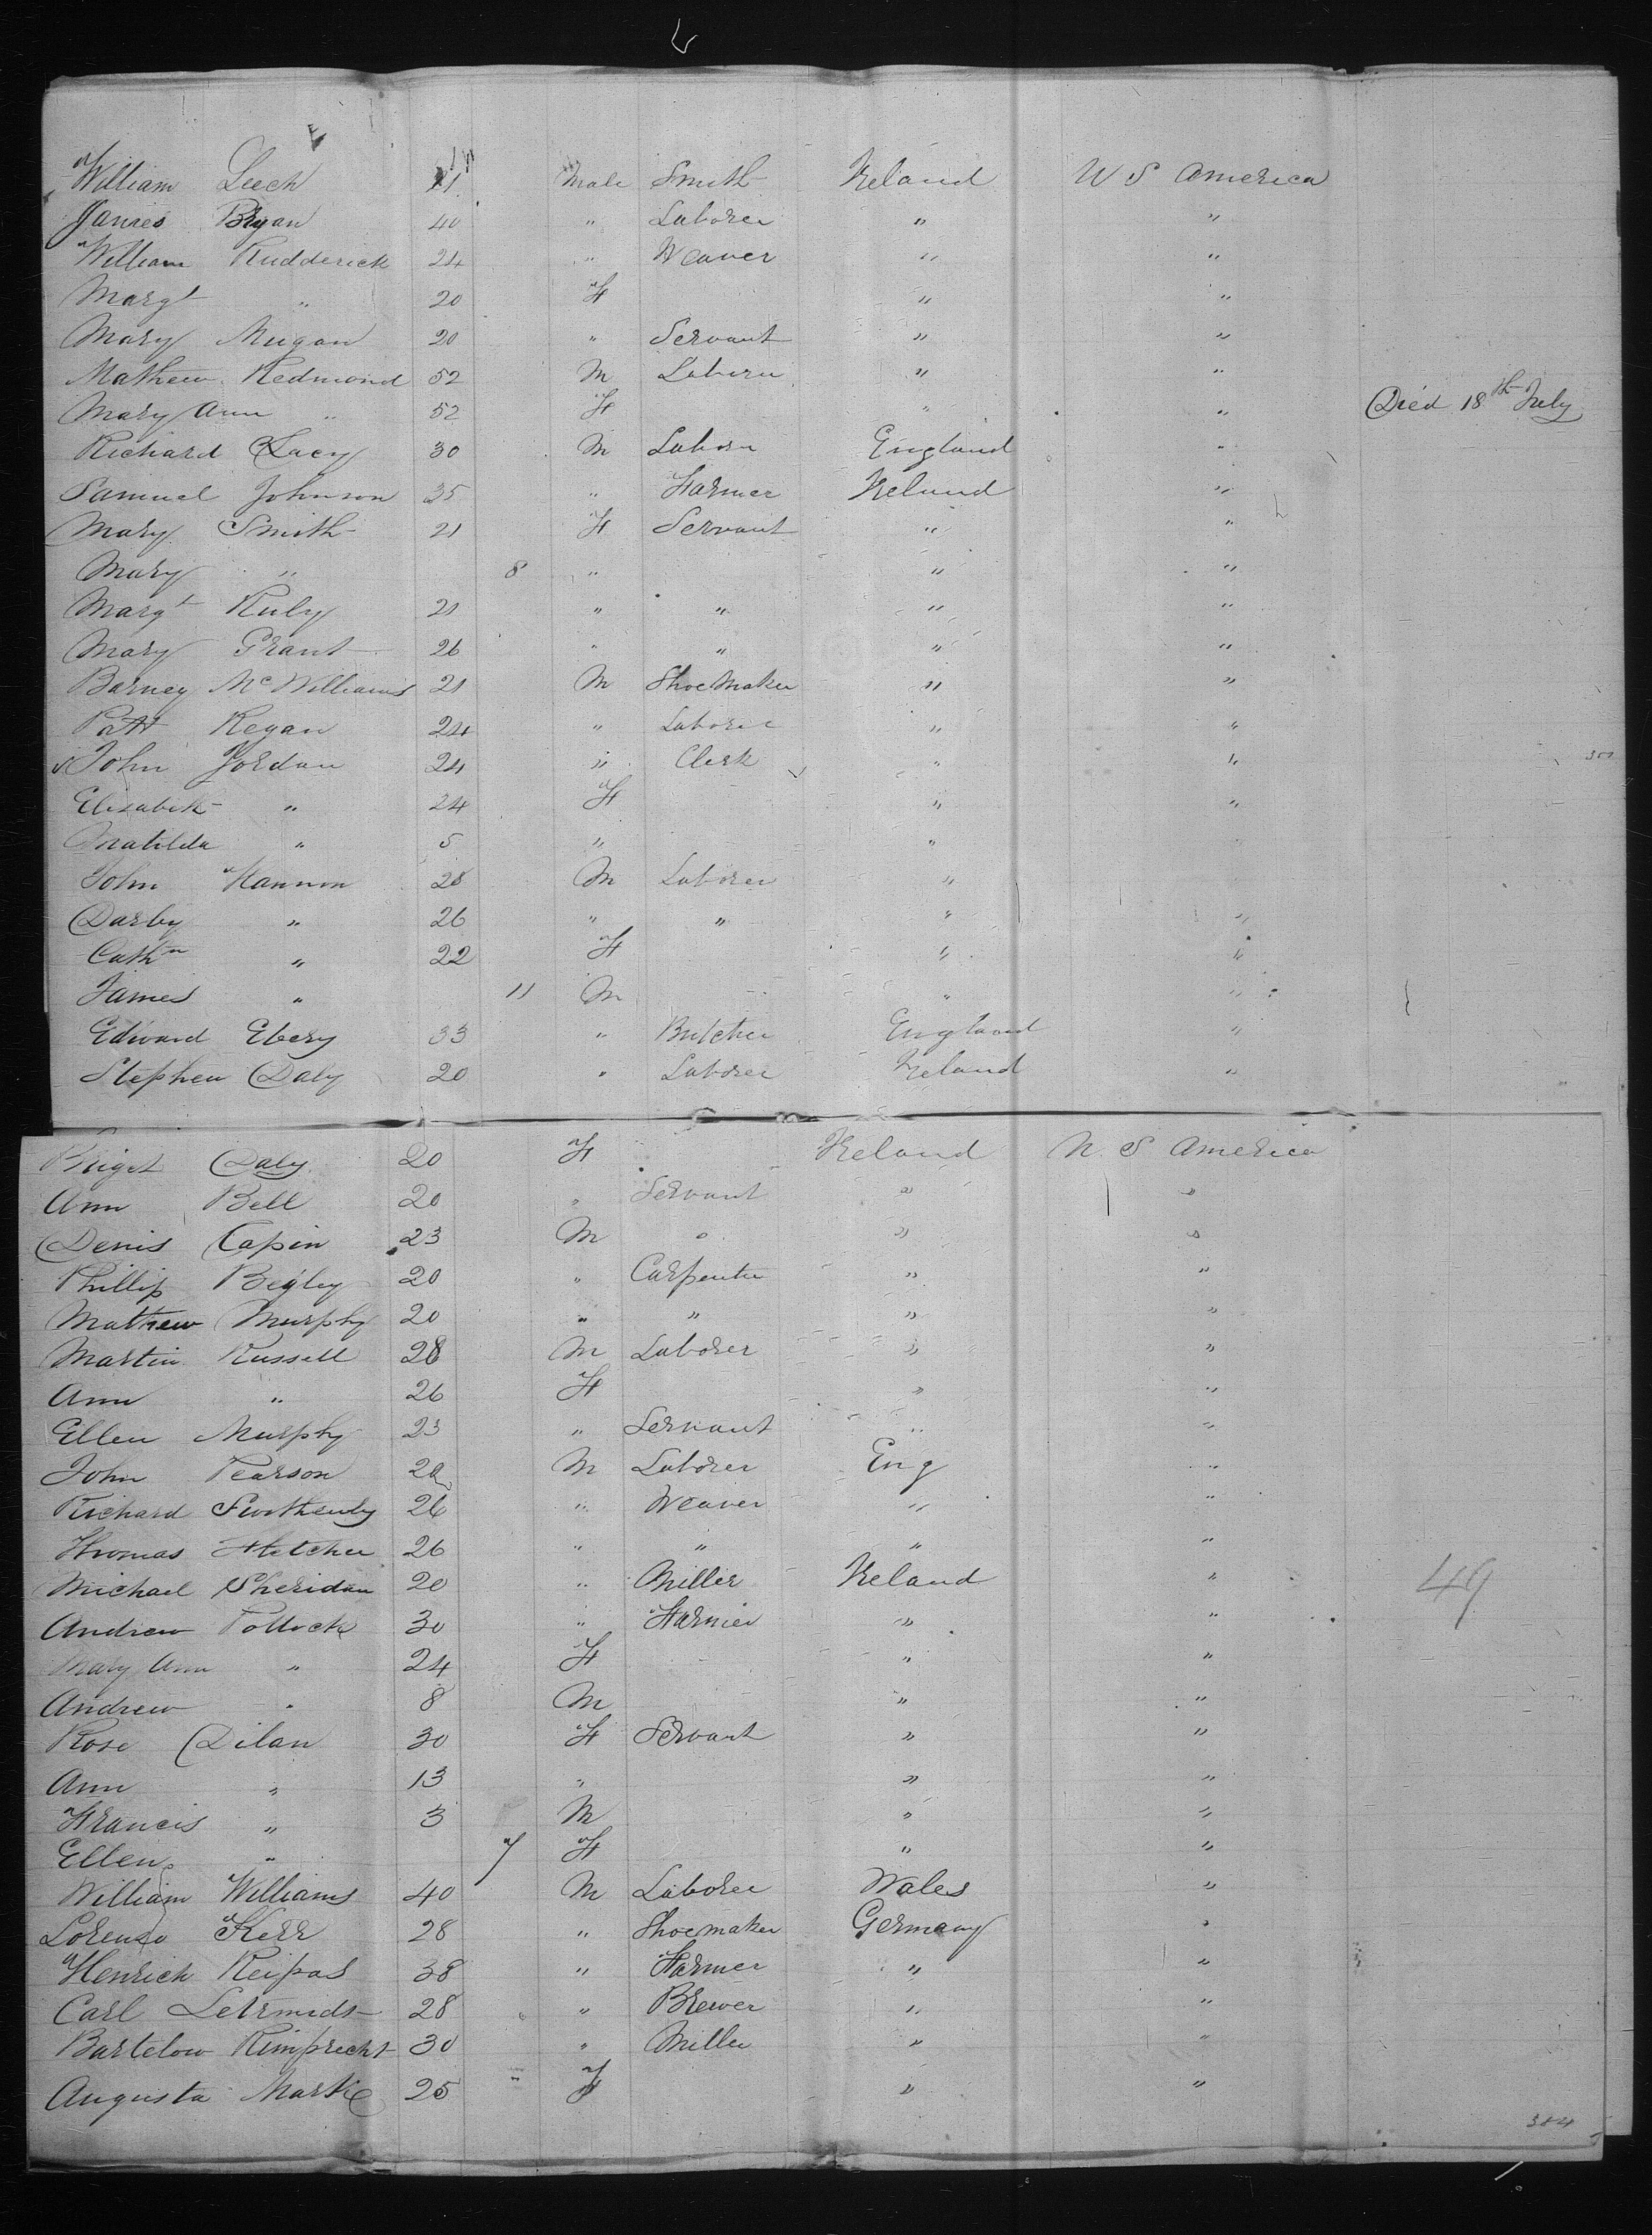 William Leech Male Smith Ireland U S America
James Bryan 40 " Laborer " "
William Rudderick 24 " Weaver " "
Margt " 20 F " "
Mary Mugan 20 " Servant " "
Mathew Redmond 52 M Laborer " "
Mary Ann " 52 F " " Died 18th July
Richard Lacy 30 M Laborer England "
Samuel Johnson 35 " Farmer Ireland "
Mary Smith 21 F Servant " "
Mary " 8 " " "
Margt Ruly 21 " " " "
Mary Grant 26 " " " "
Barney McWilliams 21 M Shoemaker " "
Patt Regan 24 " Laborer " "
John Jordan 24 " Clerk " "
Elizabeth " 24 F " "
Matilda " 5 " "
John Hannon 28 M Laborer "
Darby " 26 " " " "
Cathn " 22 F " "
James " 11 M " "
Edward Ebery 33 " Butcher England "
Stephen Daly 20 " Laborer Ireland "
Briget Daly 20 F Ireland U S America
Ann Bell 20 " Servant " "
Denis Capin 23 M " " "
Phillip Begley 20 " Carpenter " "
Mathew Murphy 20 " " " "
Martin Russell 28 M Laborer " "
Ann " 26 F " "
Ellen Murphy 23 " Servant " "
John Pearson 20 M Laborer Eng "
Richard 26 " Weaver " "
Thomas Fletcher 26 " " " "
Michael Sheridan 20 " Miller Ireland "
Andrew Pollock 30 " Farmer " "
Mary Ann " 24 F " "
Andrew " 8 M " "
Rose Dilan 30 F Servant " "
Ann " 13 " " "
Francis " 3 M " "
Ellen " 7 F " "
William Williams 40 M Laborer Wales "
Lorenzo Kerr 28 " Shoemaker Germany "
Henrich Reipas 38 " Farmer " "
Carl Letrmidt 28 " Brewer " "
Bartelow Rimprecht 30 " Miller " "
Augusta Mark 25 F " "
49
384